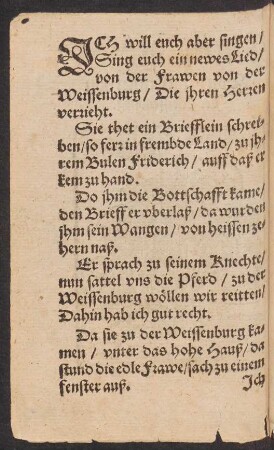 ICH will euch aber singen /
Sing euch ein newes Lied /
von der Frawen von der
Weissenburg / Die jhren Herren
verrieht.
Sie thet ein Briefflein schrei-
ben / so ferr in frembde Land / zu jh-
rem Bulen Friderich / auff daß er
kem zu hand.
Do jhm die Bottschafft kame /
den Brieff er vberlaß / da wurden
jhm sein Wangen / von heissen ze-
hern naß.
Er sprach zu seinem Knechte /
nun sattel vns die Pferd / zu der
Weissenburg wöllen wir reitten /
Dahin hab ich gut recht.
Da sie zu der Weissenburg ka-
men / vnter das hohe Hauß / da
stund die edle Frawe / sach zu einem
fenster auß.
Ich